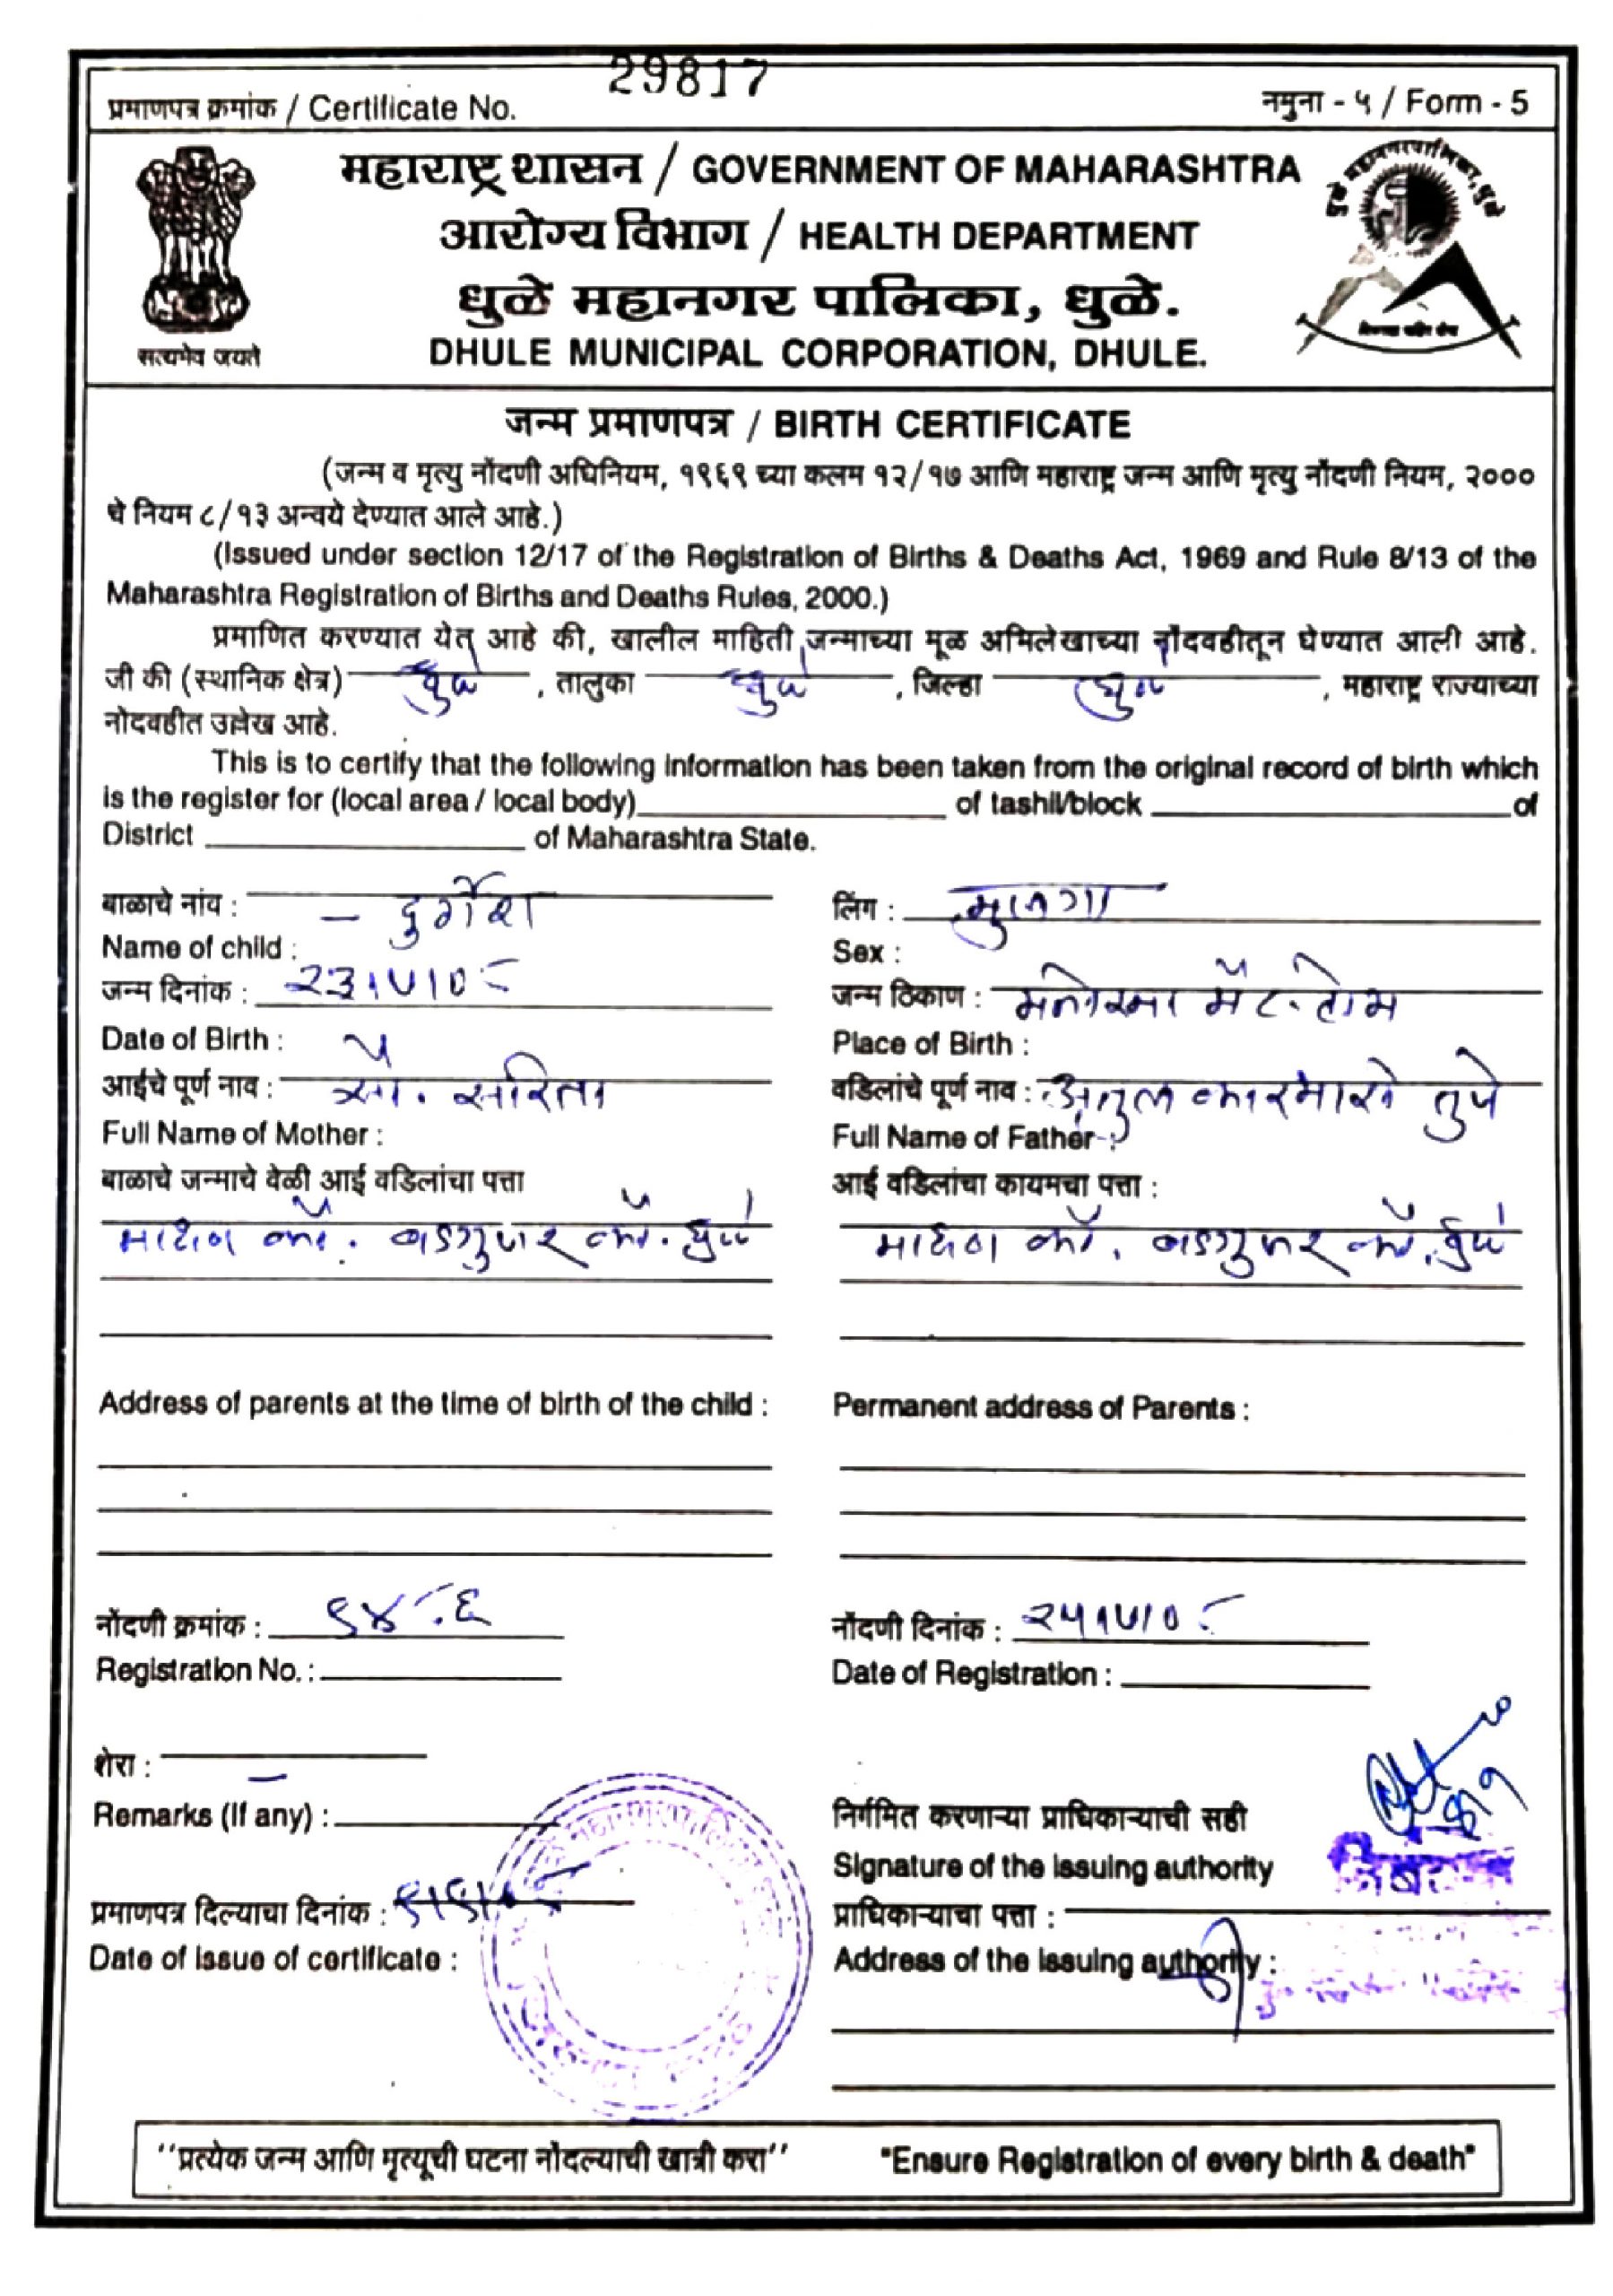 29817
प्रमाणपत्र क्रमांक / Certificate No.
नमुना - ५ / Form - 5
महाराष्ट्र शासन / GOVERNMENT OF MAHARASHTRA
आरोग्य विभाग / HEALTH DEPARTMENT
धुळे महानगर पालिका, धुळे.
DHULE MUNICIPAL CORPORATION, DHULE.
सत्यमेव जयते
धुळे महानगरपालिका, धुळे
जन्म प्रमाणपत्र / BIRTH CERTIFICATE
(जन्म व मृत्यु नोंदणी अधिनियम, १९६९ च्या कलम १२/१७ आणि महाराष्ट्र जन्म आणि मृत्यु नोंदणी नियम, २०००
चे नियम ८/१३ अन्वये देण्यात आले आहे.)
(Issued under section 12/17 of the Registration of Births & Deaths Act, 1969 and Rule 8/13 of the
Maharashtra Registration of Births and Deaths Rules, 2000.)
प्रमाणित करण्यात येत आहे की, खालील माहिती जन्माच्या मूळ अभिलेखाच्या नोंदवहीतून घेण्यात आली आहे.
जी की (स्थानिक क्षेत्र) धुळे , तालुका धुळे , जिल्हा धुळे , महाराष्ट्र राज्याच्या
नोदवहीत उल्लेख आहे.
This is to certify that the following information has been taken from the original record of birth which
is the register for (local area / local body) of tashil/block of
District of Maharashtra State.
बाळाचे नांव : – दुर्गेश लिंग : मुलगा
Name of child : Sex :
जन्म दिनांक : २३।५।०८ जन्म ठिकाण : मनोरमा मॅट. होम
Date of Birth : Place of Birth :
आईचे पूर्ण नाव : सौ. सरिता वडिलांचे पूर्ण नाव : अतुल
Full Name of Mother : Full Name of Father :
बाळाचे जन्माचे वेळी आई वडिलांचा पत्ता आई वडिलांचा कायमचा पत्ता :
माधव कॉ. वडगुजर कॉ. धुळे माधव कॉ. वडगुजर कॉ. धुळे
Address of parents at the time of birth of the child : Permanent address of Parents :
नोंदणी क्रमांक : नोंदणी दिनांक : २५।५।०८
Registration No. : Date of Registration :
शेरा : –
Remarks (If any) :
निर्गमित करणाऱ्या प्राधिकाऱ्याची सही
Signature of the issuing authority
प्रमाणपत्र दिल्याचा दिनांक : प्राधिकाऱ्याचा पत्ता :
Date of issue of certificate : Address of the issuing authority :
"प्रत्येक जन्म आणि मृत्यूची घटना नोंदल्याची खात्री करा" "Ensure Registration of every birth & death"